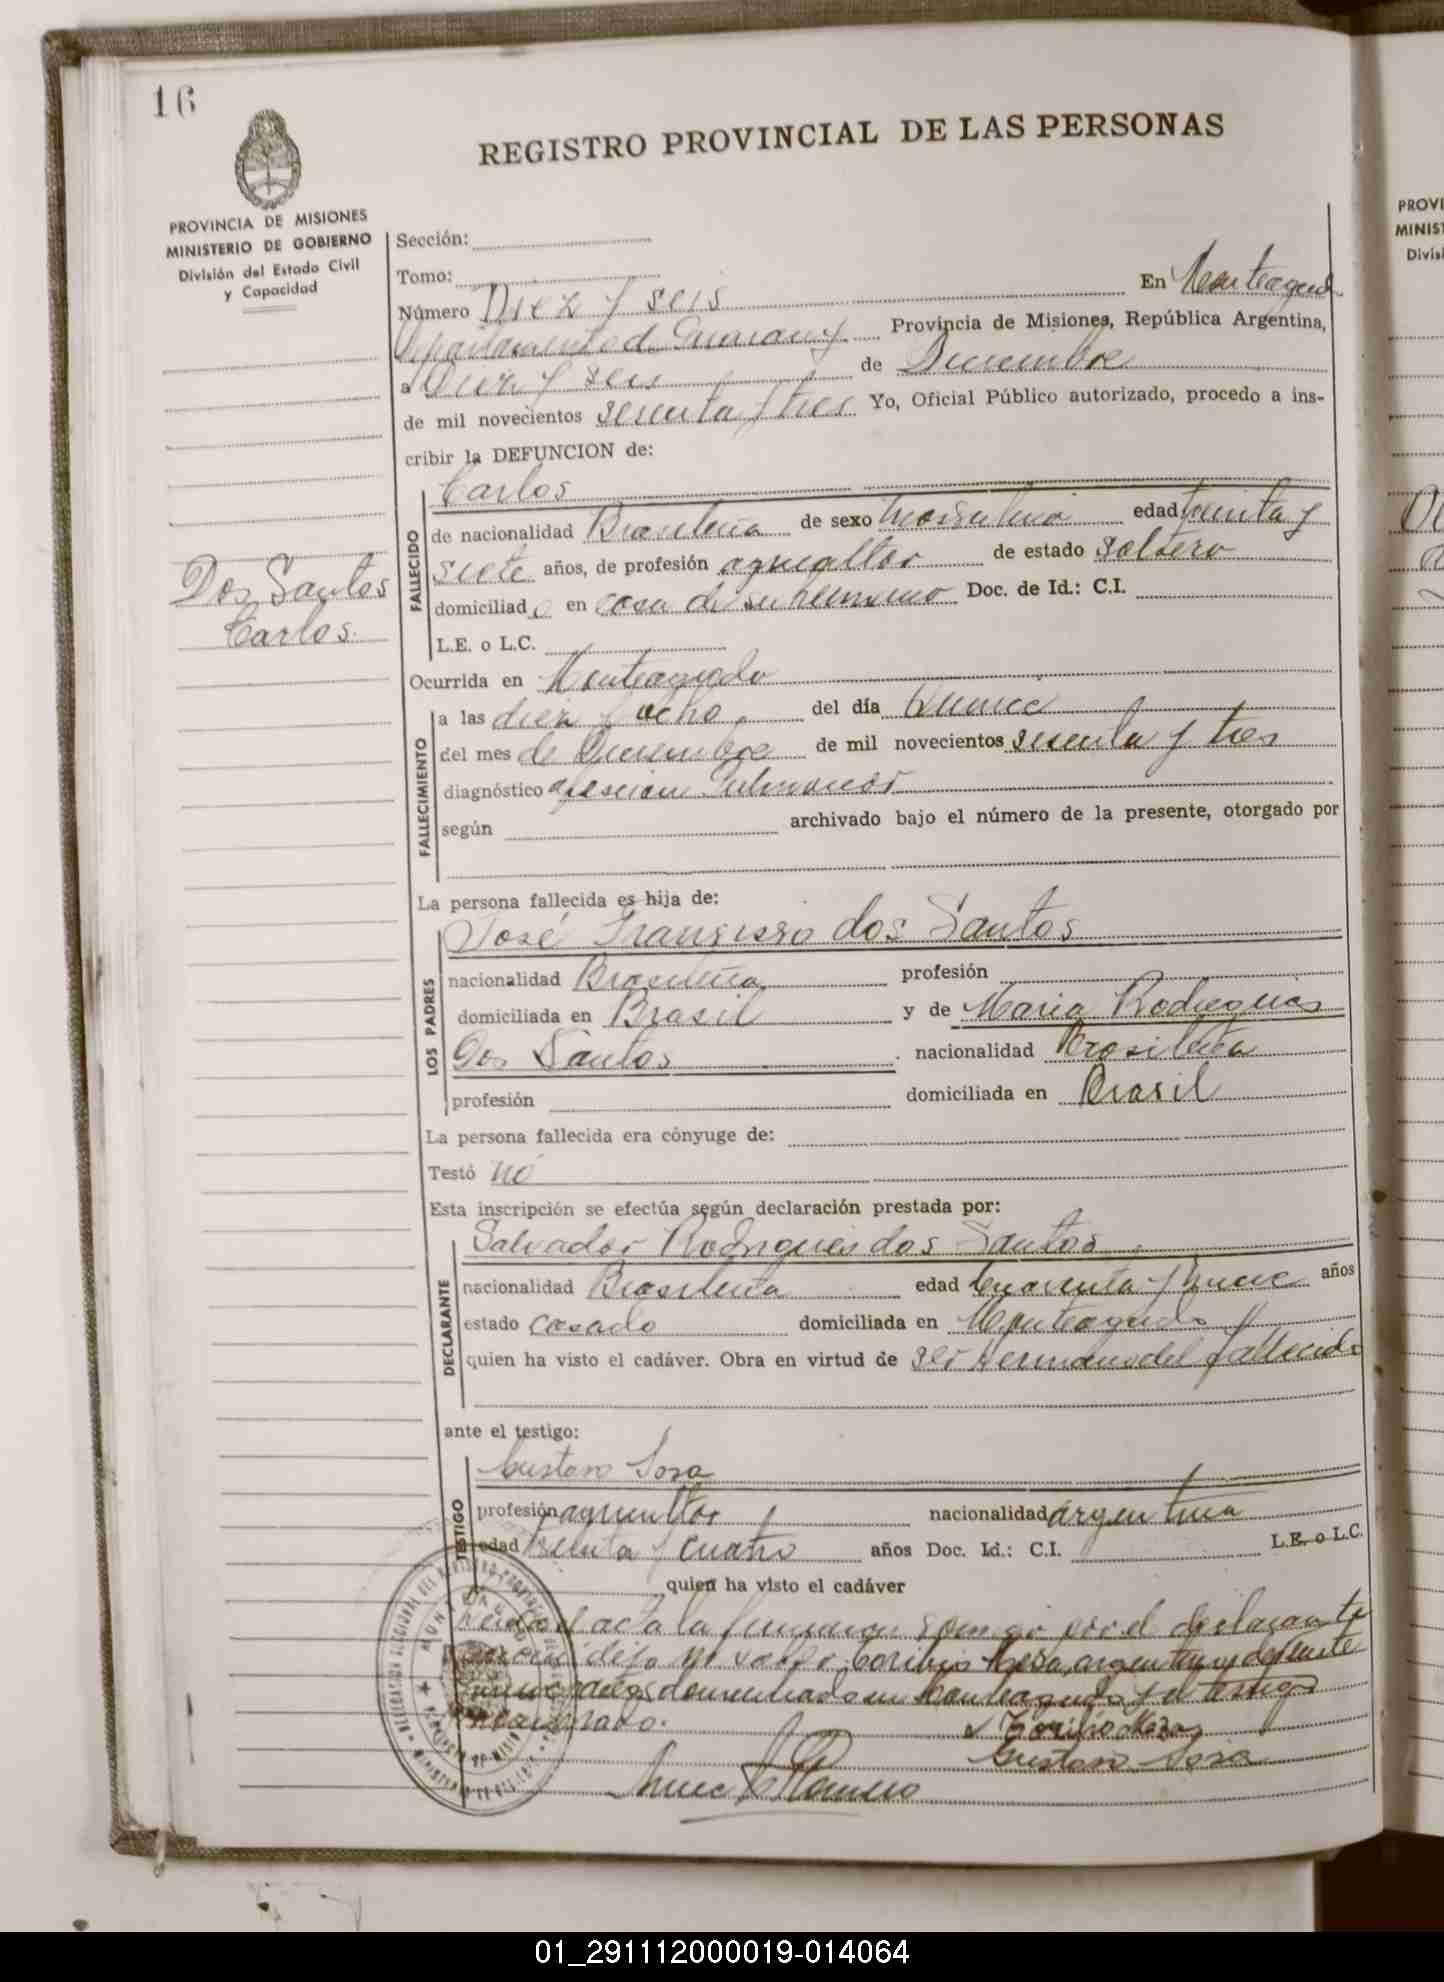 16
REGISTRO PROVINCIAL DE LAS PERSONAS
PROVINCIA DE MISIONES
MINISTERIO DE GOBIERNO
División del Estado Civil
y Capacidad
Sección:
Tomo:
Número Diez y seis En Monteagudo
Departamento de Guarany Provincia de Misiones, República Argentina,
a Diez y seis de Diciembre
de mil novecientos sesenta y tres Yo, Oficial Público autorizado, procedo a ins-
cribir la DEFUNCION de:
Carlos
FALLECIDO
de nacionalidad Brasileña de sexo masculino edad treinta y
siete años, de profesión agricultor de estado soltero
domiciliado en casa de su hermano Doc. de Id.: C.I.
L.E. o L.C.
Dos Santos
Carlos.
Ocurrida en Monteagudo
FALLECIMIENTO
a las diez y ocho del día Quince
del mes de Diciembre de mil novecientos sesenta y tres
diagnóstico afescion Pulmonar
según archivado bajo el número de la presente, otorgado por
La persona fallecida es hija de:
LOS PADRES
José Fransisco dos Santos
nacionalidad Brasileña profesión
domiciliada en Brasil y de Maria Rodriguis
Dos Santos nacionalidad Brasileña
profesión domiciliada en Brasil
La persona fallecida era cónyuge de:
Testó no
Esta inscripción se efectúa según declaración prestada por:
DECLARANTE
Salvador Rodrigues dos Santos
nacionalidad Brasileña edad Cuarenta y nueve años
estado casado domiciliada en Monteagudo
quien ha visto el cadáver. Obra en virtud de ser hermano del fallecido
ante el testigo:
TESTIGO
Gustavo Sosa
profesión agricultor nacionalidad argentina
edad treinta y cuatro años Doc. Id.: C.I. L.E. o L.C.
quien ha visto el cadáver
acta la por el declarante
dijo no argentino de
domiciliado en Monteagudo y el testigo
Gustavo Sosa
PROVI
MINIST
Divisi
01_291112000019-014064